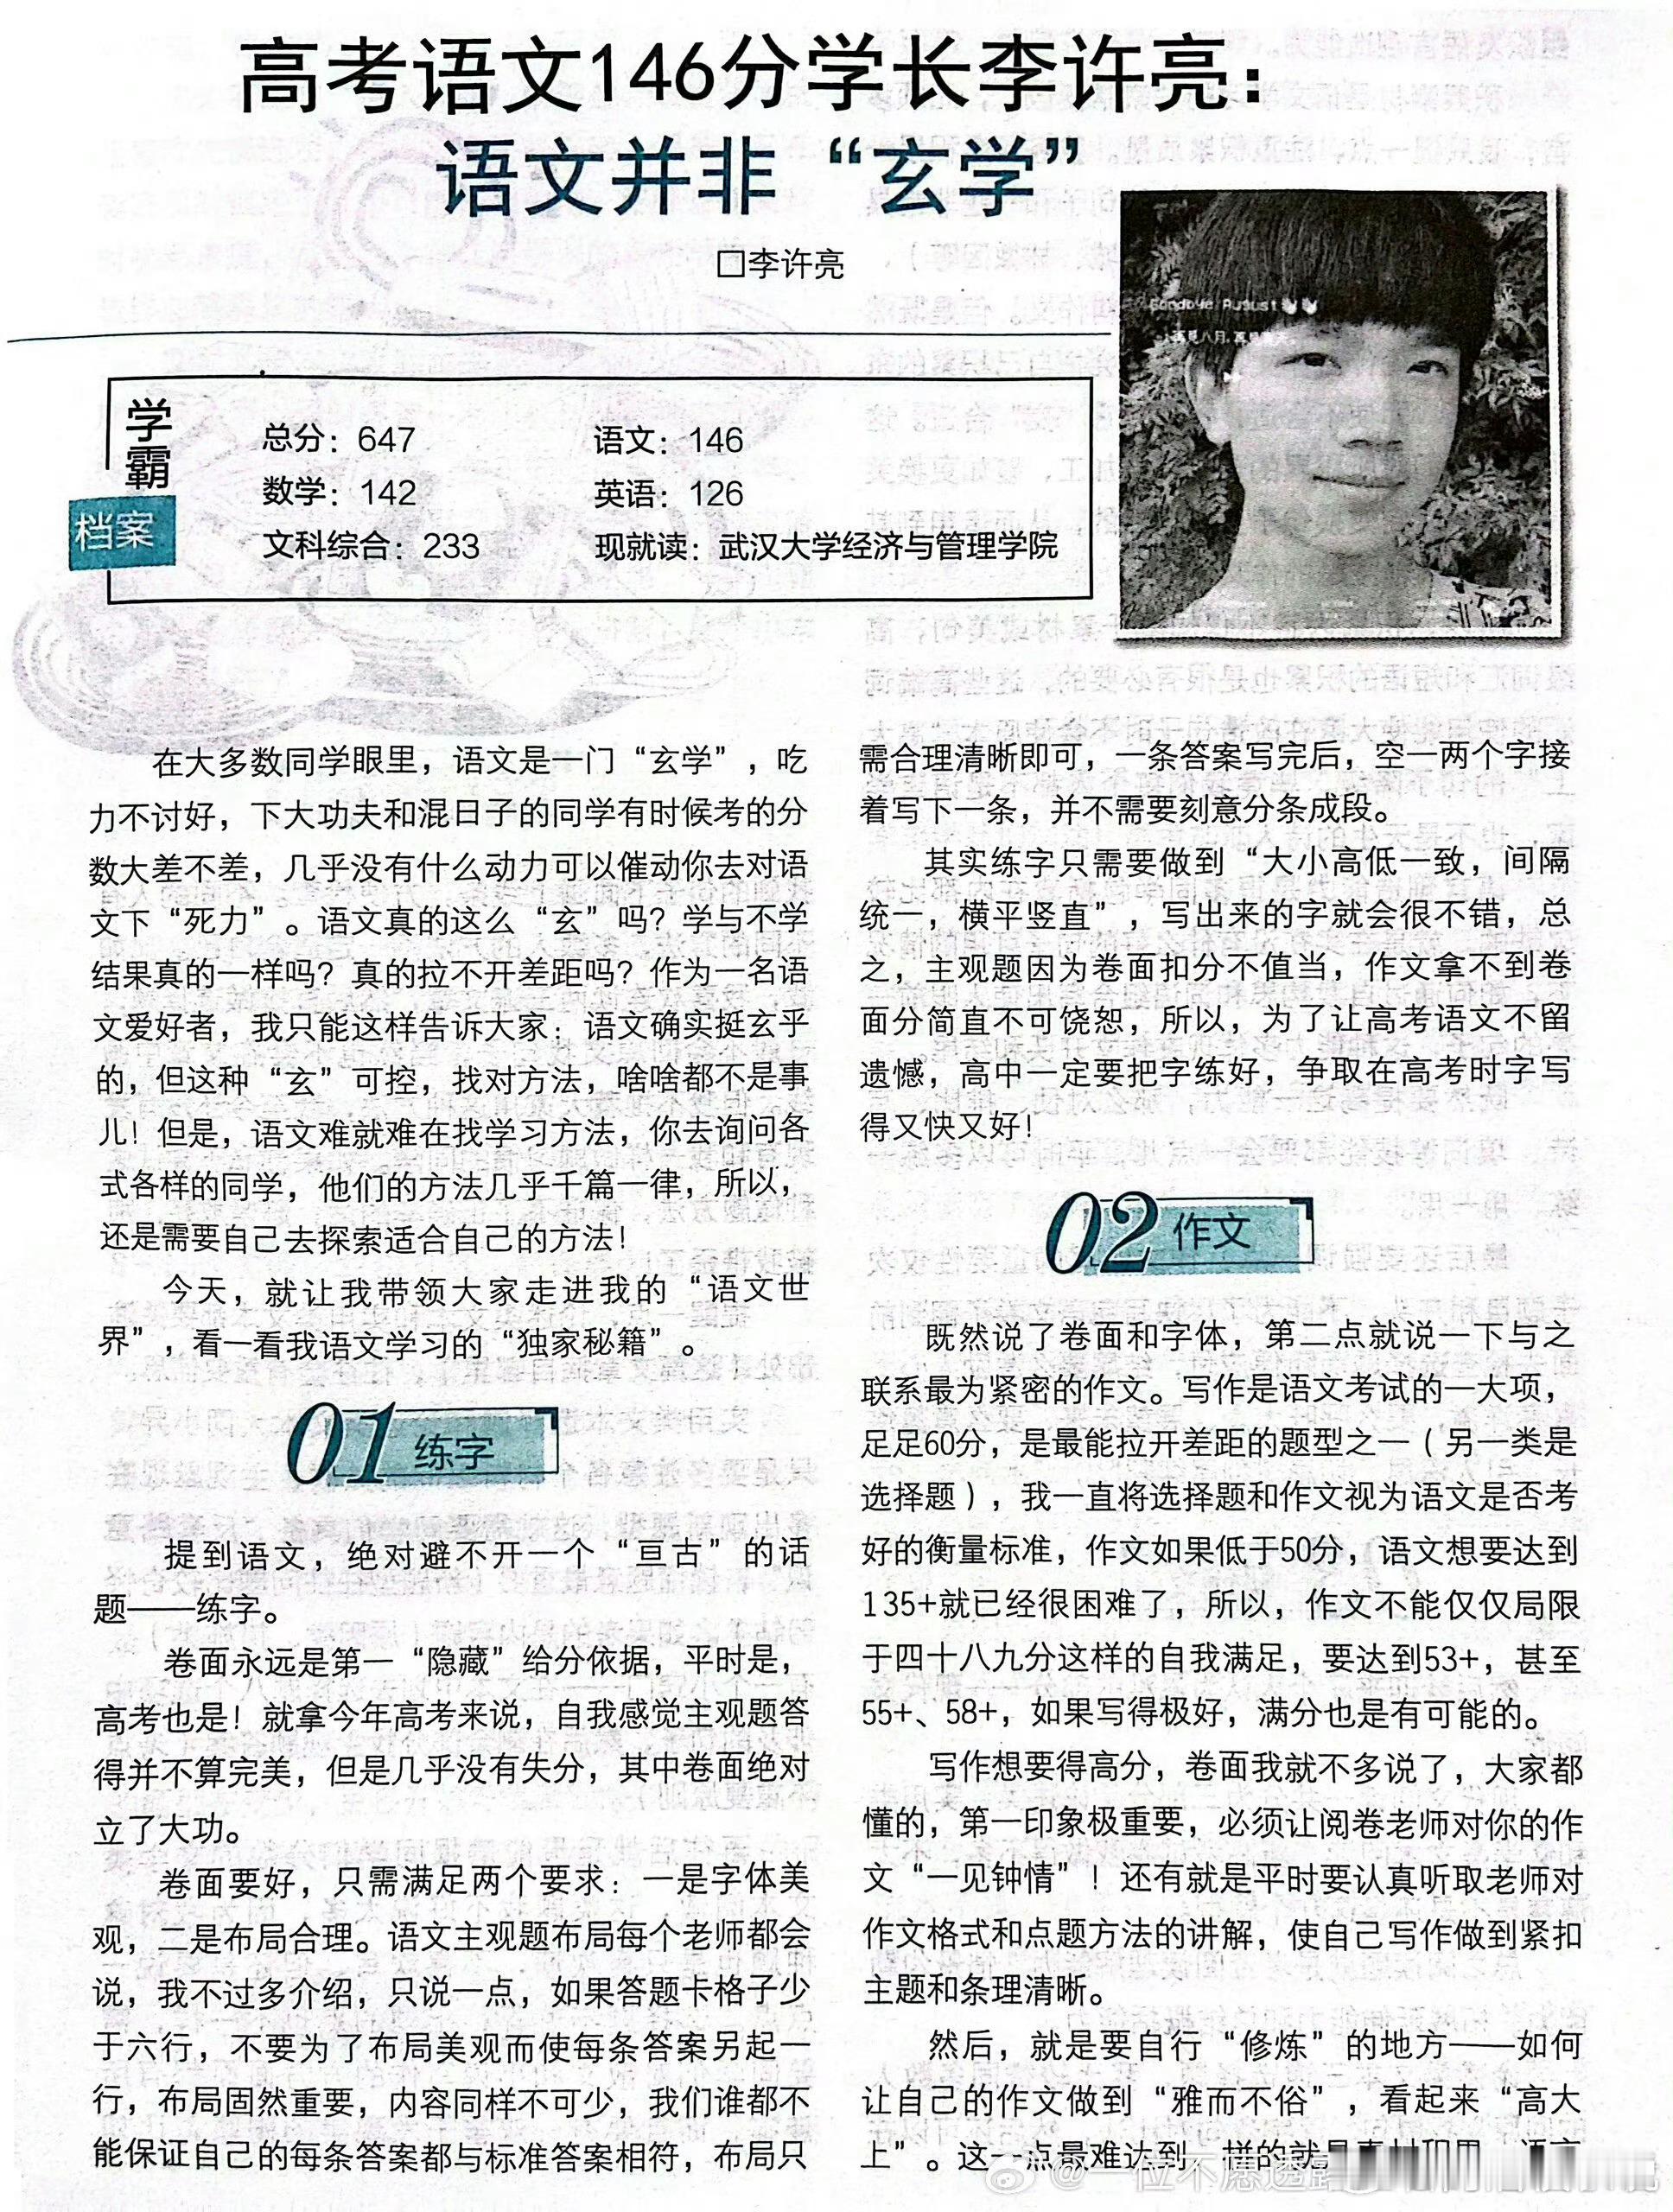 高考语文146分学长李许亮：
语文并非“玄学”
□李许亮
Goodbye August
学霸
档案
总分：647
语文：146
数学：142
英语：126
文科综合：233
现就读：武汉大学经济与管理学院
在大多数同学眼里，语文是一门“玄学”，吃
力不讨好，下大功夫和混日子的同学有时候考的分
数大差不差，几乎没有什么动力可以催动你去对语
文下“死力”。语文真的这么“玄”吗？学与不学
结果真的一样吗？真的拉不开差距吗？作为一名语
文爱好者，我只能这样告诉大家：语文确实挺玄乎
的，但这种“玄”可控，找对方法，啥啥都不是事
儿！但是，语文难就难在找学习方法，你去询问各
式各样的同学，他们的方法几乎千篇一律，所以，
还是需要自己去探索适合自己的方法！
今天，就让我带领大家走进我的“语文世
界”，看一看我语文学习的“独家秘籍”。
01 练字
提到语文，绝对避不开一个“亘古”的话
题——练字。
卷面永远是第一“隐藏”给分依据，平时是，
高考也是！就拿今年高考来说，自我感觉主观题答
得并不算完美，但是几乎没有失分，其中卷面绝对
立了大功。
卷面要好，只需满足两个要求：一是字体美
观，二是布局合理。语文主观题布局每个老师都会
说，我不过多介绍，只说一点，如果答题卡格子少
于六行，不要为了布局美观而使每条答案另起一
行，布局固然重要，内容同样不可少，我们谁都不
能保证自己的每条答案都与标准答案相符，布局只
需合理清晰即可，一条答案写完后，空一两个字接
着写下一条，并不需要刻意分条成段。
其实练字只需要做到“大小高低一致，间隔
统一，横平竖直”，写出来的字就会很不错，总
之，主观题因为卷面扣分不值当，作文拿不到卷
面分简直不可饶恕，所以，为了让高考语文不留
遗憾，高中一定要把字练好，争取在高考时字写
得又快又好！
02 作文
既然说了卷面和字体，第二点就说一下与之
联系最为紧密的作文。写作是语文考试的一大项，
足足60分，是最能拉开差距的题型之一（另一类是
选择题），我一直将选择题和作文视为语文是否考
好的衡量标准，作文如果低于50分，语文想要达到
135+就已经很困难了，所以，作文不能仅仅局限
于四十八九分这样的自我满足，要达到53+，甚至
55+、58+，如果写得极好，满分也是有可能的。
写作想要得高分，卷面我就不多说了，大家都
懂的，第一印象极重要，必须让阅卷老师对你的作
文“一见钟情”！还有就是平时要认真听取老师对
作文格式和点题方法的讲解，使自己写作做到紧扣
主题和条理清晰。
然后，就是要自行“修炼”的地方——如何
让自己的作文做到“雅而不俗”，看起来“高大
上”。这一点最难达到，拼的就是
@一位不愿透